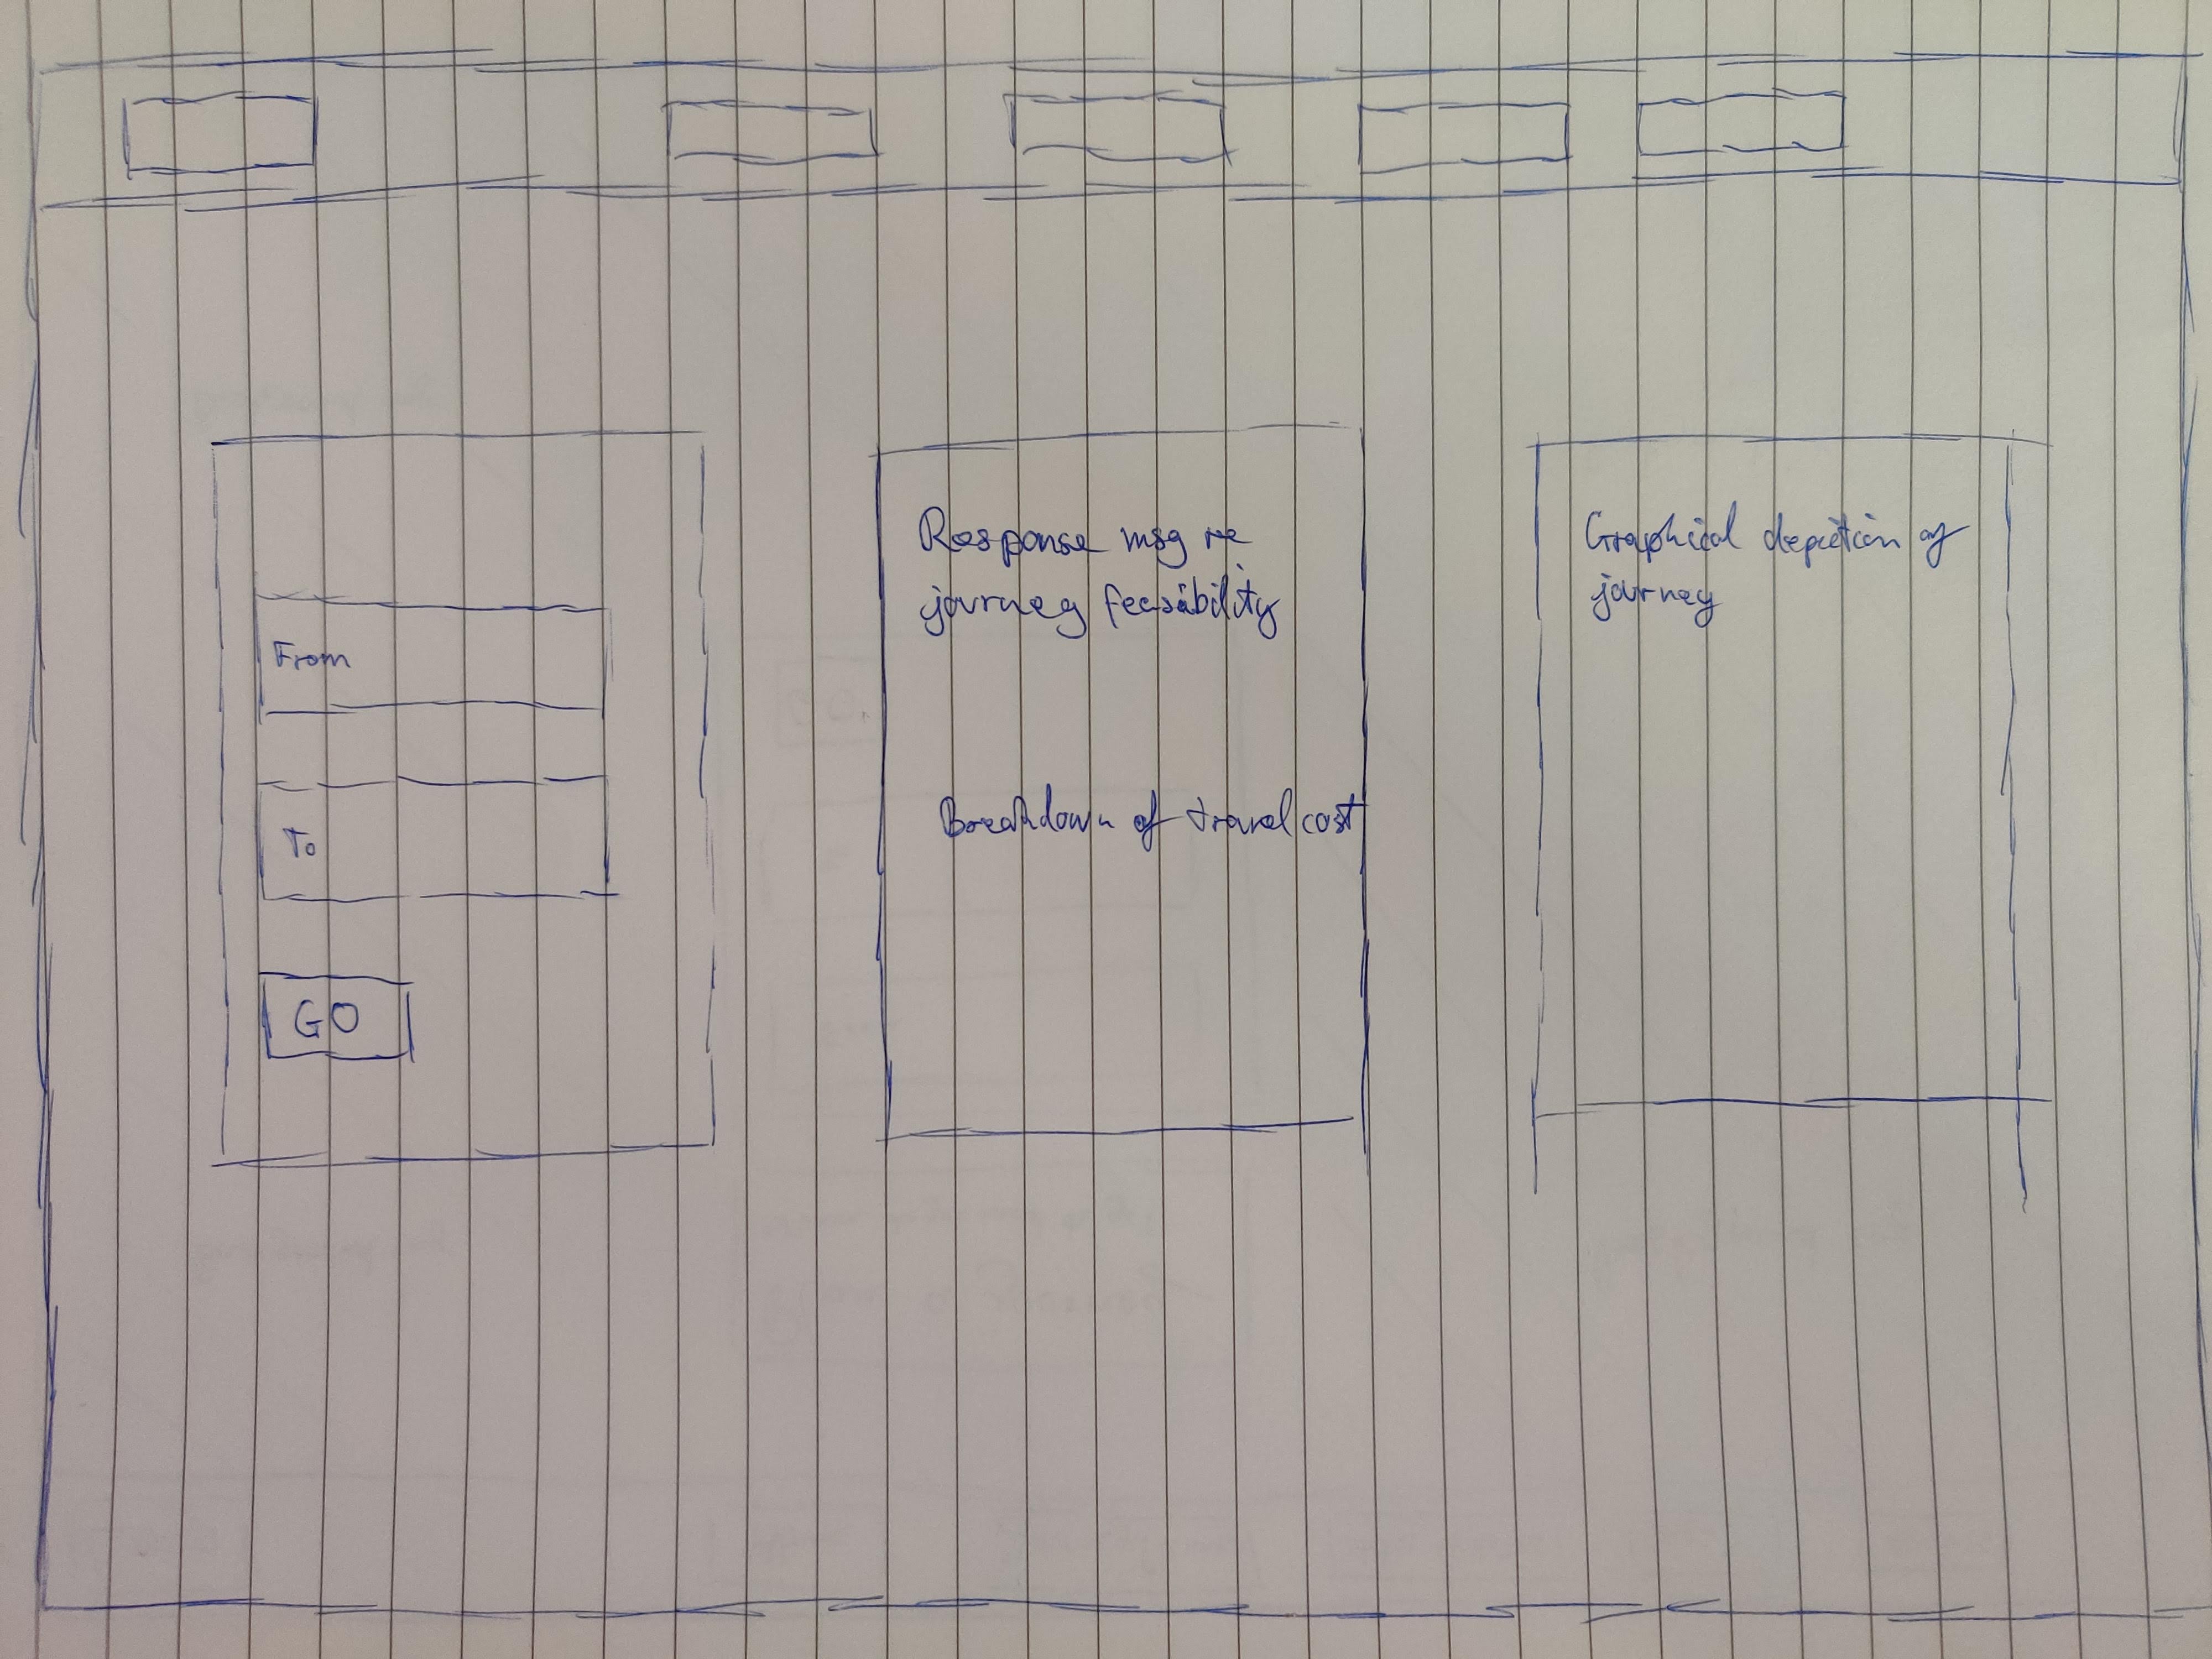 From
To
GO
Response msg re
journey feasibility
Breakdown of travel cost
Graphical depiction of
journey